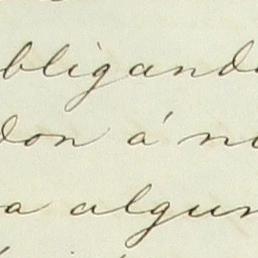 bligando
don á n
a algun